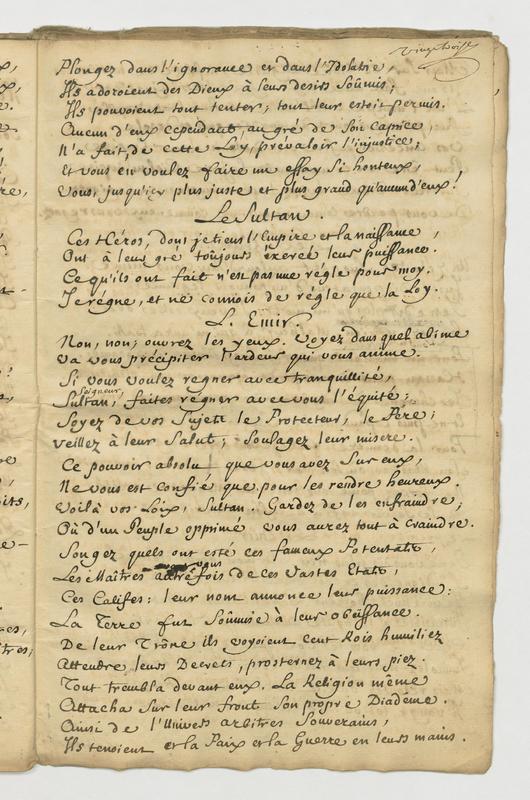 vingt trois
Plongez dans l'ignorance et dans l'Idolatrie,
Ils adoroient des Dieux à leurs desirs soûmis;
Ils pouvoient tout tenter; tout leur estoit permis.
Aucun d'eux cependant, au gré de son caprice,
N'a fait, de cette Loy, prevaloir l'injustice;
Et vous en voulez faire un essay si honteux,
Vous, jusqu'icy plus juste et plus grand qu'aucun d'eux!
Le Sultan.
Ces Héros, dont je tiens l'Empire et la naissance,
Ont à leur gré toûjours éxercé leur puissance.
Ce qu'ils ont fait n'est pas une régle pour moy.
Je régne, et ne connois de régle que la Loy.
L. Emir.
Non, non; ouvrez les yeux. Voyez dans quel abime
Va vous précipiter l'ardeur qui vous anime.
Si vous voulez regner avec tranquillité,
Seigneur,
Sultan, faites régner avec vous l'équité;
Soyez de vos Sujets le Protecteur, le Pére;
Veillez à leur Salut; Soulagez leur misere.
Ce pouvoir absolu que vous avez sur eux,
Ne vous est confié que pour les rendre heureux.
Voilà vos Loix, Sultan. Gardez de les enfraindre;
Où d'un Peuple opprimé vous aurez tout à craindre.
Songez quels ont esté ces fameux Potentats,
vous
Les Maîtres autrefois de ces vastes Etats,
Ces Califes: leur nom annonce leur puissance:
La Terre fut soûmise à leur obeissance.
De leur Trône ils voyoient cent Rois humiliez
Attendre leurs Decrets, prosternez à leurs piez.
Tout trembla devant eux. La Religion même
Attacha sur leur front son propre Diadéme.
Ainsi de l'Univers arbitres Souverains,
Ils tenoient et la Paix et la Guerre en leurs mains.